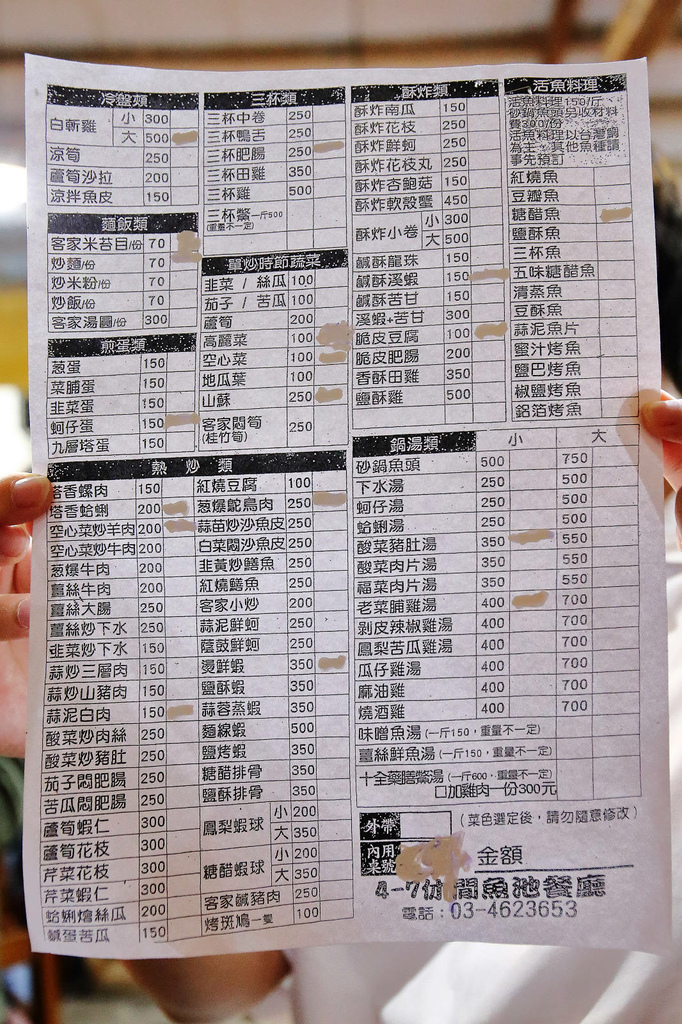 冷盤類
白斬雞 小 300
大 500
涼筍 250
蘆筍沙拉 200
涼拌魚皮 150
麵飯類
客家米苔目/份 70
炒麵/份 70
炒米粉/份 70
炒飯/份 70
客家湯圓/份 300
煎蛋類
蔥蛋 150
菜脯蛋 150
韭菜蛋 150
蚵仔蛋 150
九層塔蛋 150
三杯類
三杯中卷 250
三杯鴨舌 250
三杯肥腸 250
三杯田雞 350
三杯雞 500
三杯鱉一斤500
(重量不一定)
單炒時節蔬菜
韭菜 / 絲瓜 100
茄子 / 苦瓜 100
蘆筍 200
高麗菜 100
空心菜 100
地瓜葉 100
山蘇 250
客家悶筍 250
(桂竹筍)
酥炸類
酥炸南瓜 150
酥炸花枝 250
酥炸鮮蚵 250
酥炸花枝丸 250
酥炸杏鮑菇 150
酥炸軟殼蟹 450
酥炸小卷 小 300
大 500
鹹酥龍珠 150
鹹酥溪蝦 150
鹹酥苦甘 150
溪蝦+苦甘 300
脆皮豆腐 100
脆皮肥腸 200
香酥田雞 350
鹽酥雞 500
活魚料理
活魚料理150/斤
砂鍋魚頭另收材料
費300/份
活魚料理以台灣鯛
為主，其他魚種請
事先預訂
紅燒魚
豆瓣魚
糖醋魚
鹽酥魚
三杯魚
五味糖醋魚
清蒸魚
豆酥魚
蒜泥魚片
蜜汁烤魚
鹽巴烤魚
椒鹽烤魚
鋁箔烤魚
熱炒類
塔香螺肉 150
塔香蛤蜊 200
空心菜炒羊肉 200
空心菜炒牛肉 200
蔥爆牛肉 200
薑絲牛肉 200
薑絲大腸 250
薑絲炒下水 250
韭菜炒下水 150
蒜炒三層肉 150
蒜炒山豬肉 250
蒜泥白肉 150
酸菜炒肉絲 250
酸菜炒豬肚 250
茄子悶肥腸 250
苦瓜悶肥腸 250
蘆筍蝦仁 300
蘆筍花枝 300
芹菜花枝 300
芹菜蝦仁 300
蛤蜊燴絲瓜 200
鹹蛋苦瓜 150
紅燒豆腐 100
蔥爆鴕鳥肉 250
蒜苗炒沙魚皮 250
白菜悶沙魚皮 250
韭黃炒鱔魚 350
紅燒鱔魚 250
客家小炒 200
蒜泥鮮蚵 250
蔭鼓鮮蚵 250
燙鮮蝦 350
鹽酥蝦 350
蒜蓉蒸蝦 350
麵線蝦 500
鹽烤蝦 350
糖醋排骨 350
鹽酥排骨 350
鳳梨蝦球 小 200
大 350
糖醋蝦球 小 200
大 350
客家鹹豬肉 250
烤斑鳩一隻 100
鍋湯類 小 大
砂鍋魚頭 500 750
下水湯 250 500
蚵仔湯 250 500
蛤蜊湯 250 500
酸菜豬肚湯 350 550
酸菜肉片湯 350 550
福菜肉片湯 350 550
老菜脯雞湯 400 700
剝皮辣椒雞湯 400 700
鳳梨苦瓜雞湯 400 700
瓜仔雞湯 400 700
麻油雞 400 700
燒酒雞 400 700
味噌魚湯 (一斤150，重量不一定)
薑絲鮮魚湯 (一斤150，重量不一定)
十全藥膳鱉湯 (一斤600，重量不一定)
口加雞肉一份300元
外帶
(菜色選定後，請勿隨意修改)
內用
桌號
金額
4-7休閒魚池餐廳
電話：03-4623653